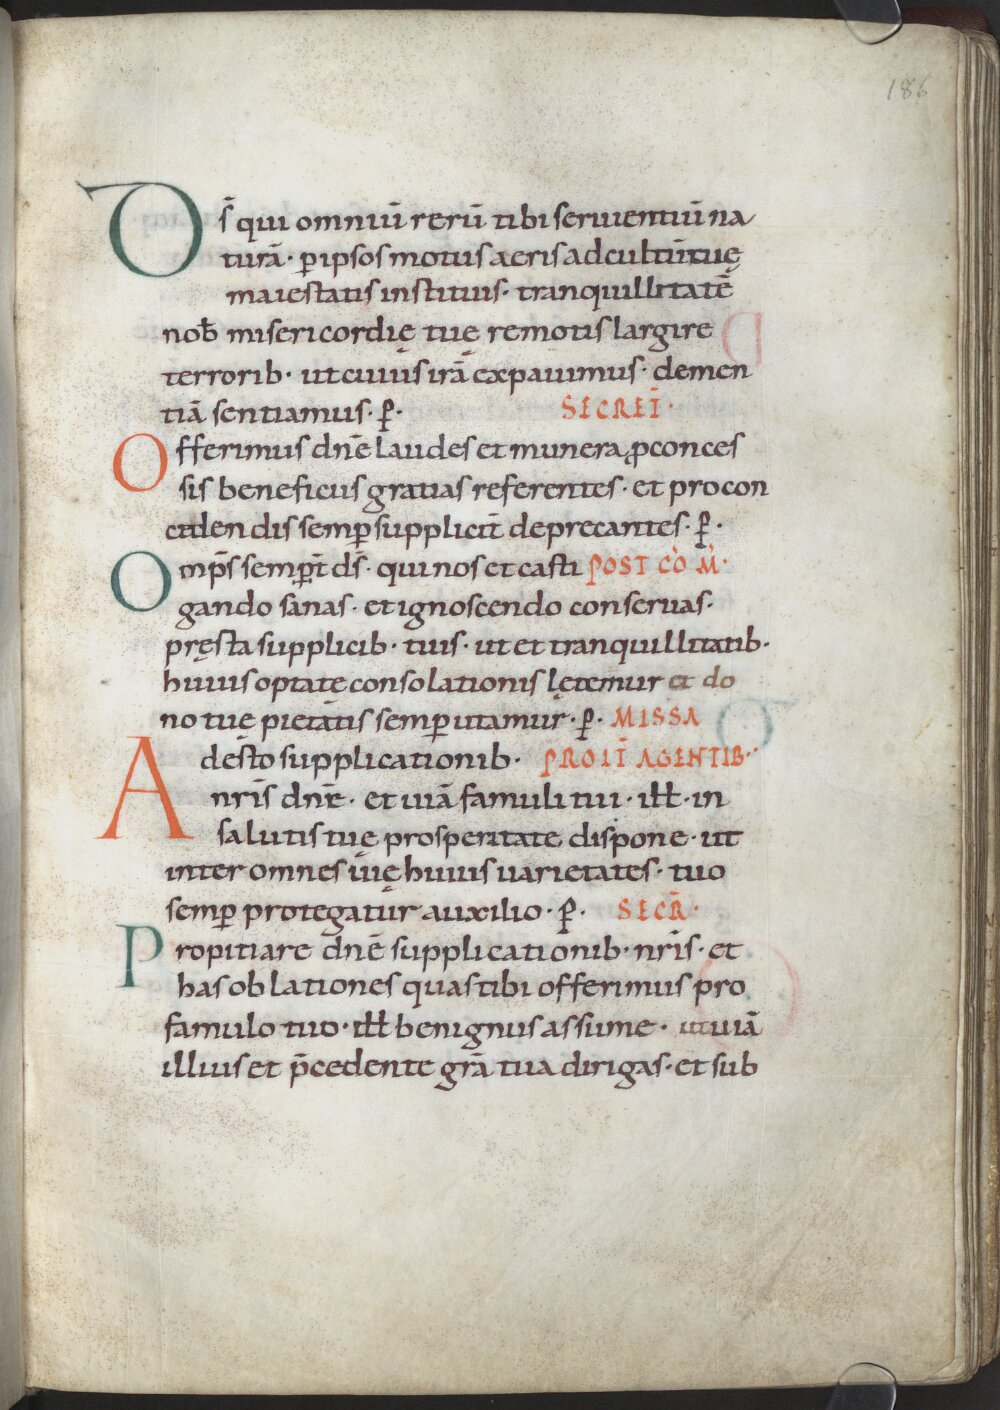 186
Ds̄ qui omniū rerū tibi seruientiū na
turā· ꝑ ipsos motus aeris ad cultū tuę
maiestatis instituis· tranquillitatē
nob̄ misericordię tuę remotis largire
terrorib· ut cuius irā expauimus· clemen
tiā sentiamus· ꝑ· SECRET̄·
Offerimus dn̄e laudes et munera ꝓ conces
sis beneficiis gratias referentes· et pro con
cedendis semꝑ supplicit̄ deprecantes· ꝑ·
Omp̄s semꝑt̄ ds̄· qui nos et casti POST CŌ M̄·
gando sanas· et ignoscendo conseruas·
pręsta supplicib· tuis· ut et tranquillitatib·
huius optatę consolationis lętemur et do
no tuę pietatis semꝑ utamur· ꝑ· MISSA
Adesto supplicationib· PRO IT̄ AGENTIB·
nr̄is dn̄e· et uiā famuli tui· ill̄· in
salutis tuę prosperitate dispone· ut
inter omnes uię huius uarietates· tuo
semꝑ protegatur auxilio· ꝑ· SECR̄·
Propitiare dn̄e supplicationib· nr̄is· et
has oblationes quas tibi offerimus pro
famulo tuo· ill̄ benignus assume· ut uiā
illius et p̄cedente gr̄a tua dirigas· et sub